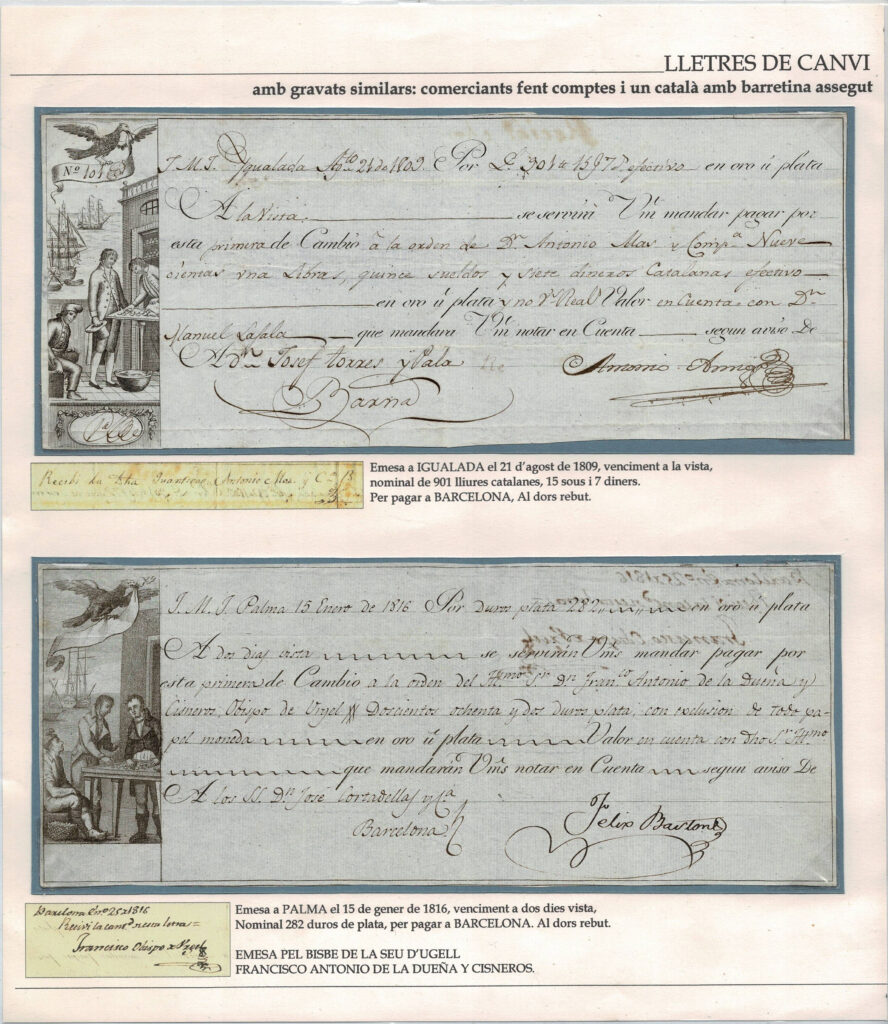 LLETRES DE CANVI
amb gravats similars: comerciants fent comptes i un català amb barretina assegut
Nº 101
J. M. J. Igualada Agto 21 de 1809. Por L. 901 ₶ 15 § 7 D efectivo en oro ú plata
A la Vista se servirá Vm mandar pagar por
esta primera de Cambio à la orden de Dn Antonio Mas y Compa Nueve
cientas una Libras, quince sueldos y siete dineros Catalanas efectivo
en oro ú plata y no Vs Real Valor en Cuenta con Dn
Manuel Lasala que mandará Vm notar en Cuenta segun aviso De
A Dn Josef Torres y Sala
Antonio
Barna
Recibi Antonio Mas y Ca
Emesa a IGUALADA el 21 d'agost de 1809, venciment a la vista,
nominal de 901 lliures catalanes, 15 sous i 7 diners.
Per pagar a BARCELONA, Al dors rebut.
J. M. J. Palma 15 Enero de 1816 Por duros plata 282,, en oro ú plata
A dos dias vista se servirán Vms mandar pagar por
esta primera de Cambio a la orden del Illmo Sr Dn Franco Antonio de la Dueña y
Cisneros, Obispo de Urgel Doscientos ochenta y dos duros plata, con exclusion de todo pa-
pel moneda en oro ú plata Valor en cuenta con Dho Sr Illmo
que mandarán Vms notar en Cuenta segun aviso De
A los SS. Dn José Cortadellas y Ca
Barcelona
Felix
Barcelona Enº 25 1816
Recivi la cantd nesta letra =
Francisco Obispo Urgel
Emesa a PALMA el 15 de gener de 1816, venciment a dos dies vista,
Nominal 282 duros de plata, per pagar a BARCELONA. Al dors rebut.
EMESA PEL BISBE DE LA SEU D'UGELL
FRANCISCO ANTONIO DE LA DUEÑA Y CISNEROS.